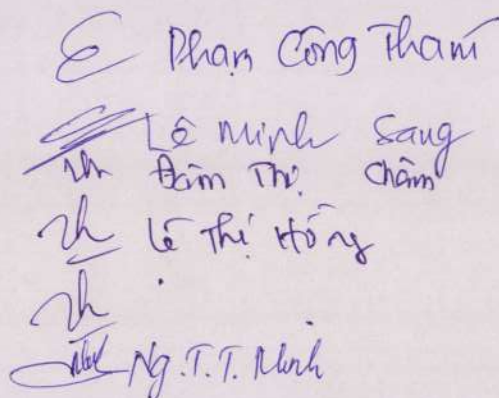 Phạm Công Tham
Lê Minh Sang
Đàm Thị Châm
Lê Thị Hồng
Ng.T.T. Minh